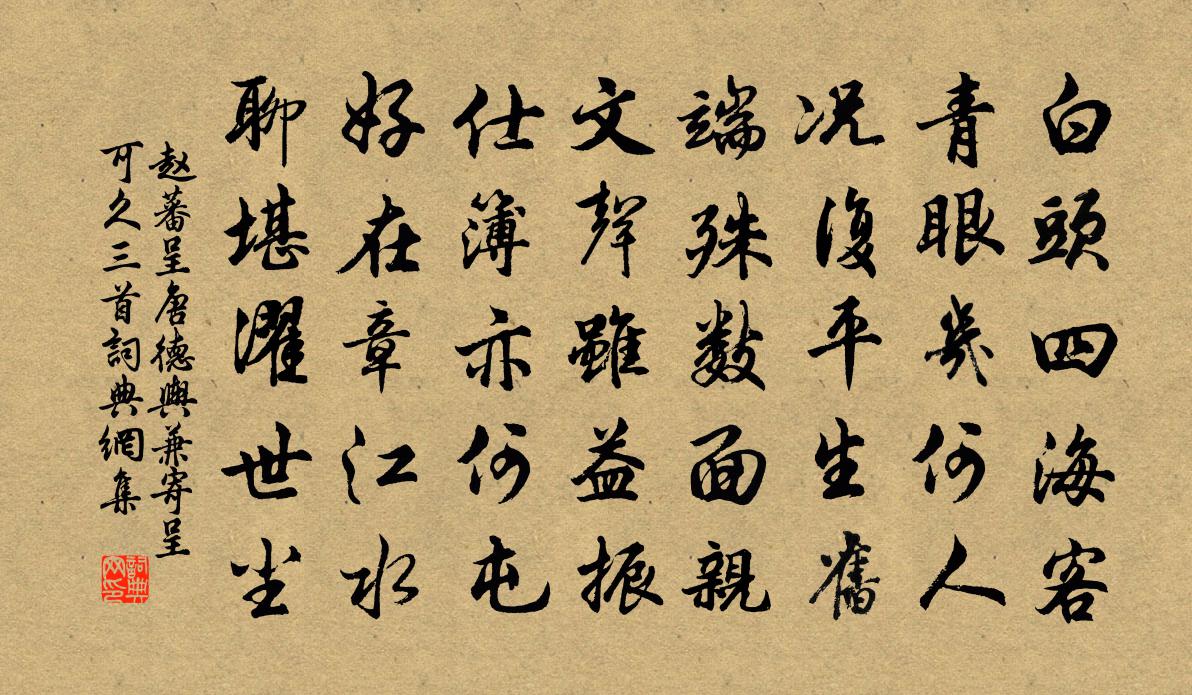 白頭四海客
青眼幾何人
况復平生舊
端殊數面親
文聲雖益振
仕簿亦何屯
好在章江水
聊堪濯世尘
赵蕃呈唐德輿兼寄呈
可久三首詞典網集
詞典网印